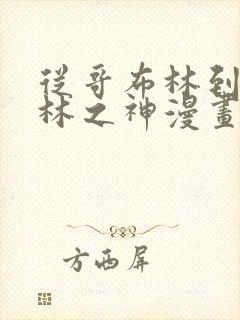 從哥布林到
林之神漫畫
方西屏